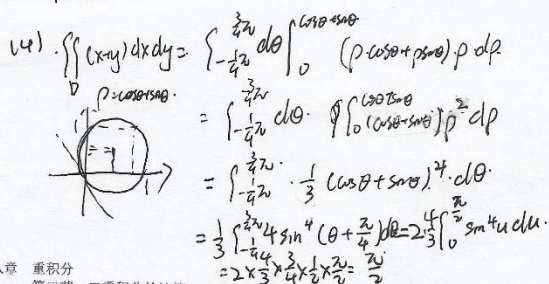 (4). ∬_D (x+y)dxdy = ∫_{-1/4π}^{3/4π} dθ ∫_0^{cosθ+sinθ} (ρcosθ+ρsinθ)·ρ dρ
ρ=cosθ+sinθ.
= ∫_{-1/4π}^{3/4π} dθ. ∫_0^{cosθ+sinθ} (cosθ+sinθ) ρ² dρ
= ∫_{-1/4π}^{3/4π} · 1/3 (cosθ+sinθ)⁴ · dθ.
= 1/3 ∫_{-1/4π}^{3/4π} 4 sin⁴(θ+π/4) dθ = 2·4/3 ∫_0^{π/2} sin⁴u du.
= 2×4/3×3/4×1/2×π/2 = π/2
章 重积分